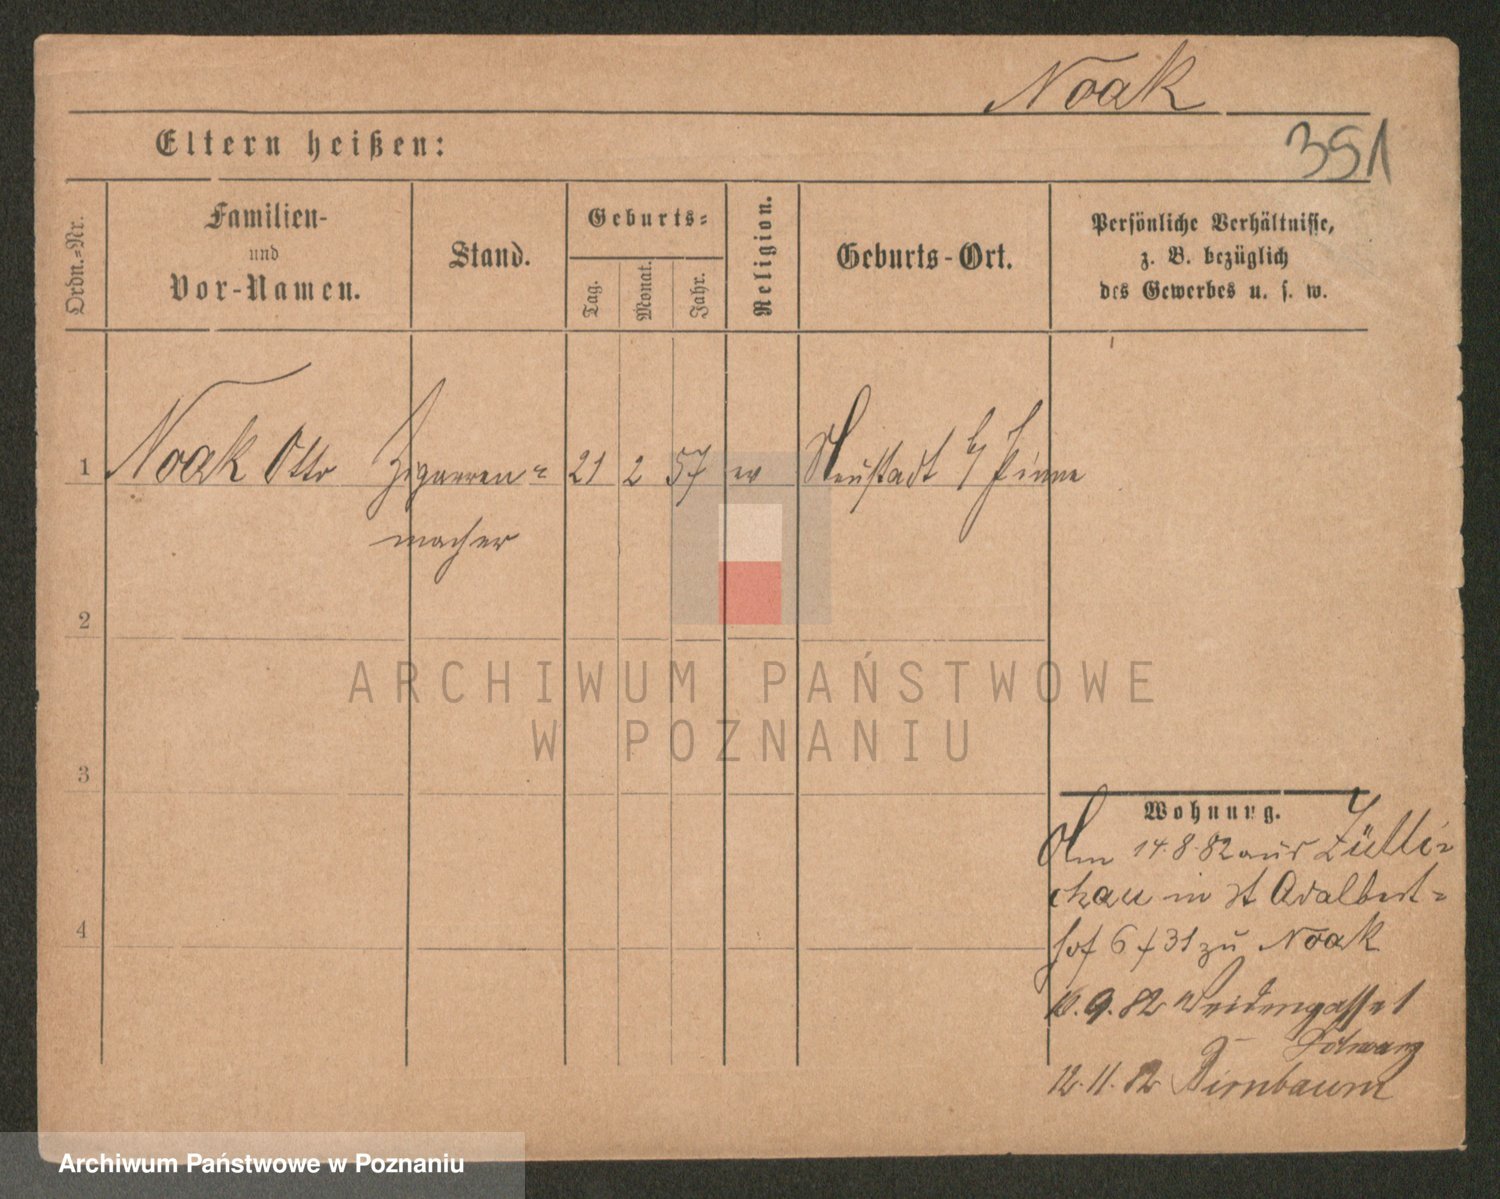 Noak
351
Eltern heißen:
Ordn.-Nr.
Familien-
und
Vor-Namen.
Stand.
Geburts-
Tag.
Monat.
Jahr.
Religion.
Geburts-Ort.
Persönliche Verhältnisse,
z. B. bezüglich
des Gewerbes u. s. w.
1 Noak Otto Zigarren- 21 2 57 ev Neustadt b/ Pinne
macher
2
3
4
Wohnung.
Am 14.8.82 aus Zülli-
chau in St Adalbert-
hof 6 f 31 zu Noak
10.9.82 Weidengasse 1
12.11.82 Birnbaum
ARCHIWUM PAŃSTWOWE
W POZNANIU
Archiwum Państwowe w Poznaniu